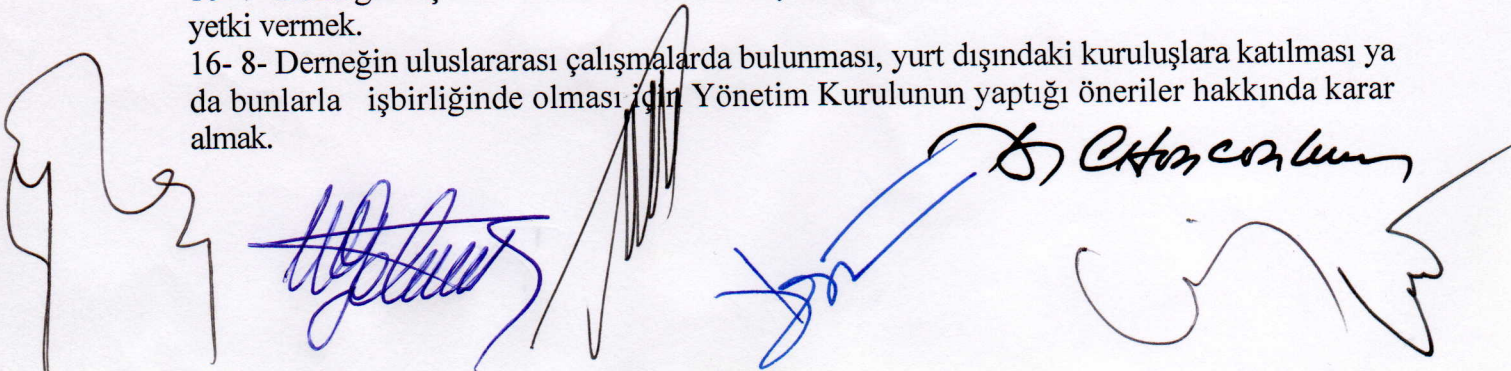 yetki vermek.
16- 8- Derneğin uluslararası çalışmalarda bulunması, yurt dışındaki kuruluşlara katılması ya
da bunlarla işbirliğinde olması için Yönetim Kurulunun yaptığı öneriler hakkında karar
almak.